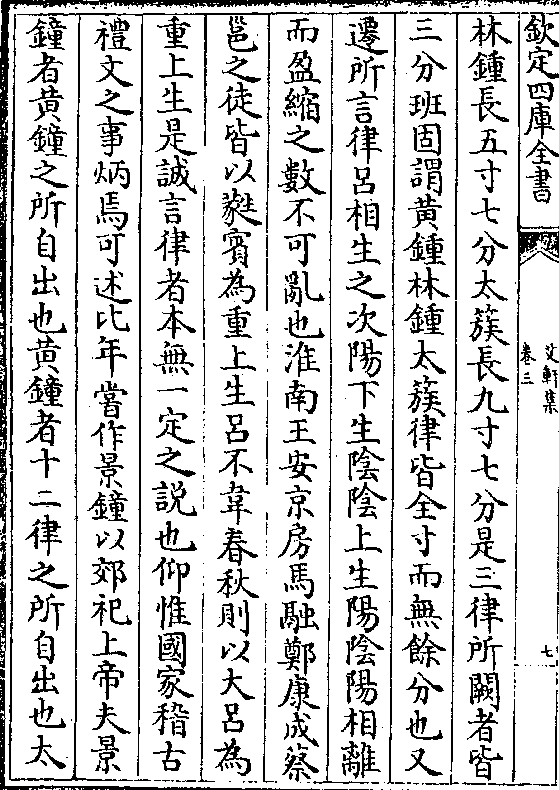 欽定四庫全書
艾軒集
卷三
七
林鍾長五寸七分太簇長九寸七分是三律所闕者皆
三分班固謂黃鍾林鍾太簇律皆全寸而無餘分也又
遷所言律呂相生之次陽下生陰陰上生陽陰陽相離
而盈縮之數不可亂也淮南王安京房馬融鄭康成蔡
邕之徒皆以蕤賓為重上生呂不韋春秋則以大呂為
重上生是誠言律者本無一定之説也仰惟國家稽古
禮文之事炳焉可述比年嘗作景鐘以郊祀上帝夫景
鐘者黄鐘之所自出也黄鐘者十二律之所自出也太